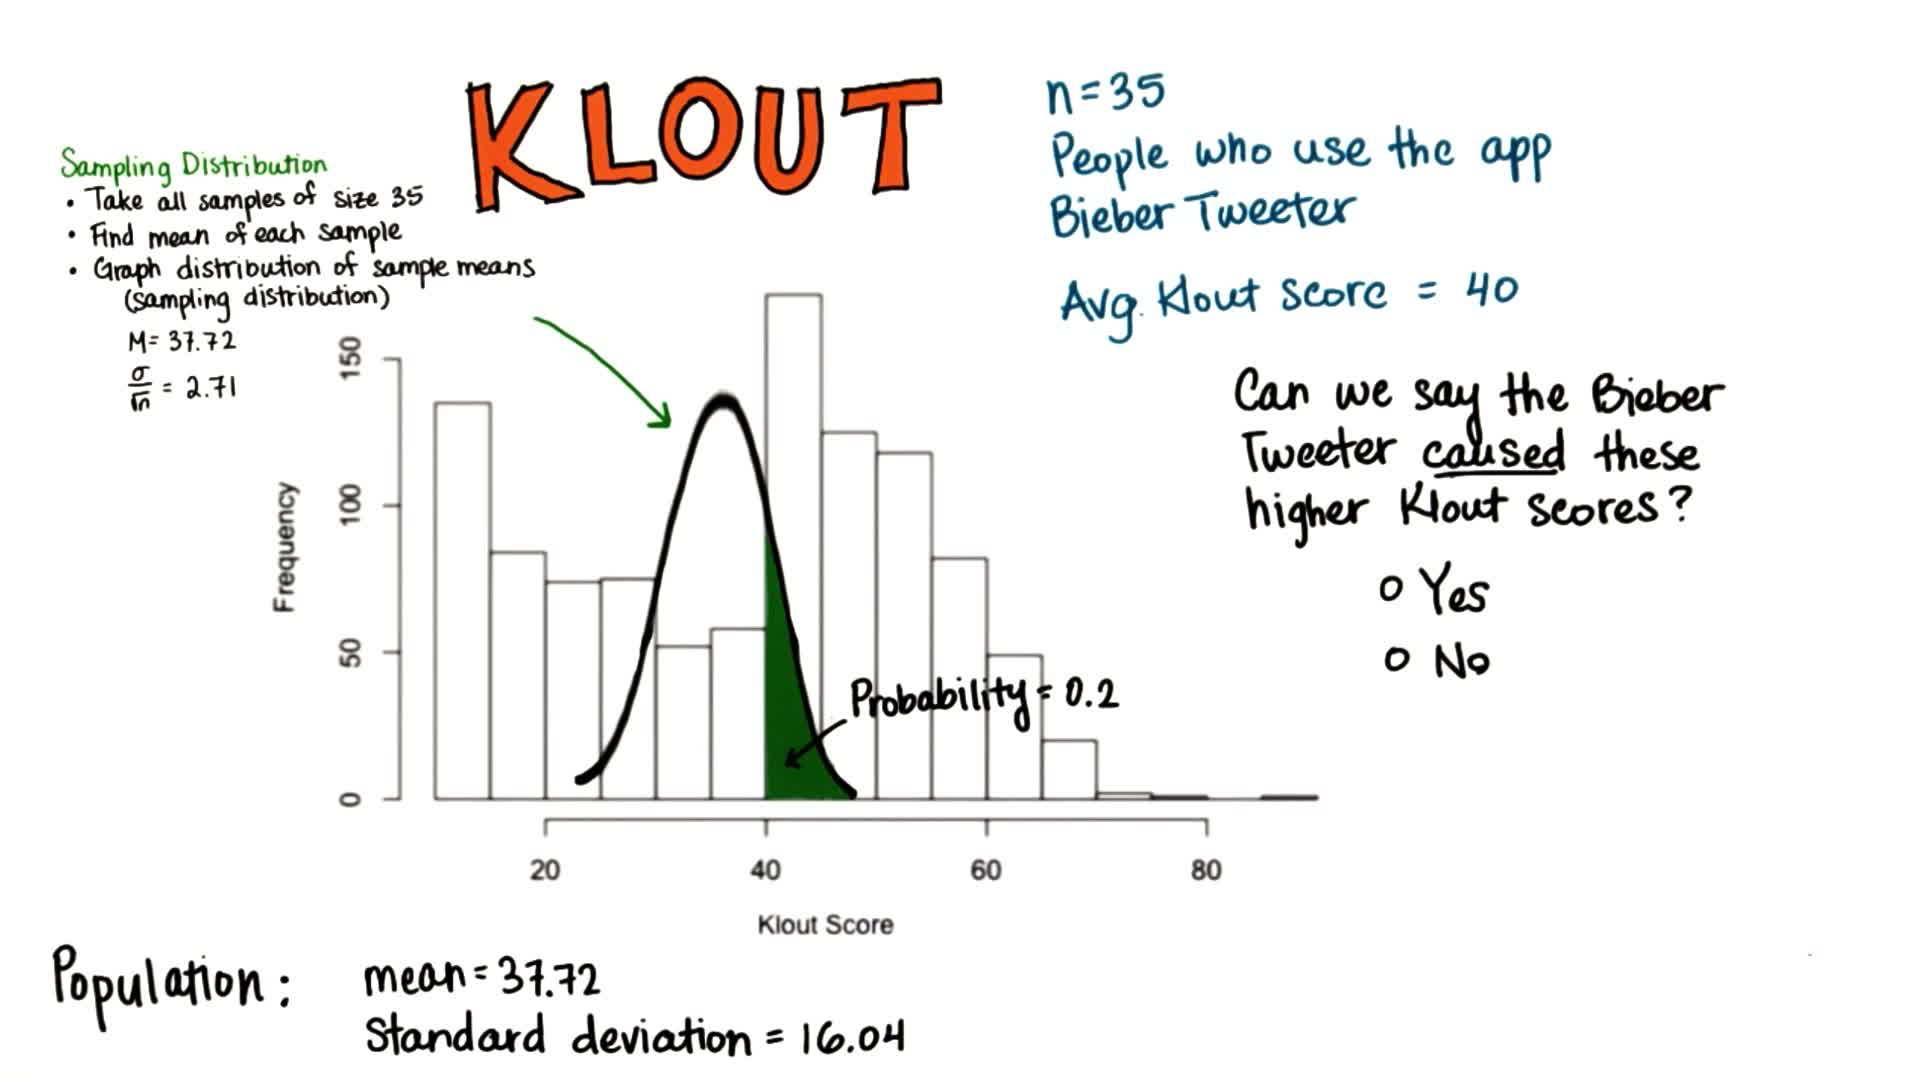 KLOUT
Sampling Distribution
• Take all samples of size 35
• Find mean of each sample
• Graph distribution of sample means
(sampling distribution)
M = 37.72
σ/√n = 2.71
n = 35
People who use the app
Bieber Tweeter
Avg. Klout score = 40
Can we say the Bieber
Tweeter caused these
higher Klout scores?
o Yes
o No
Frequency
150
100
50
0
Probability = 0.2
20 40 60 80
Klout Score
Population: mean = 37.72
Standard deviation = 16.04